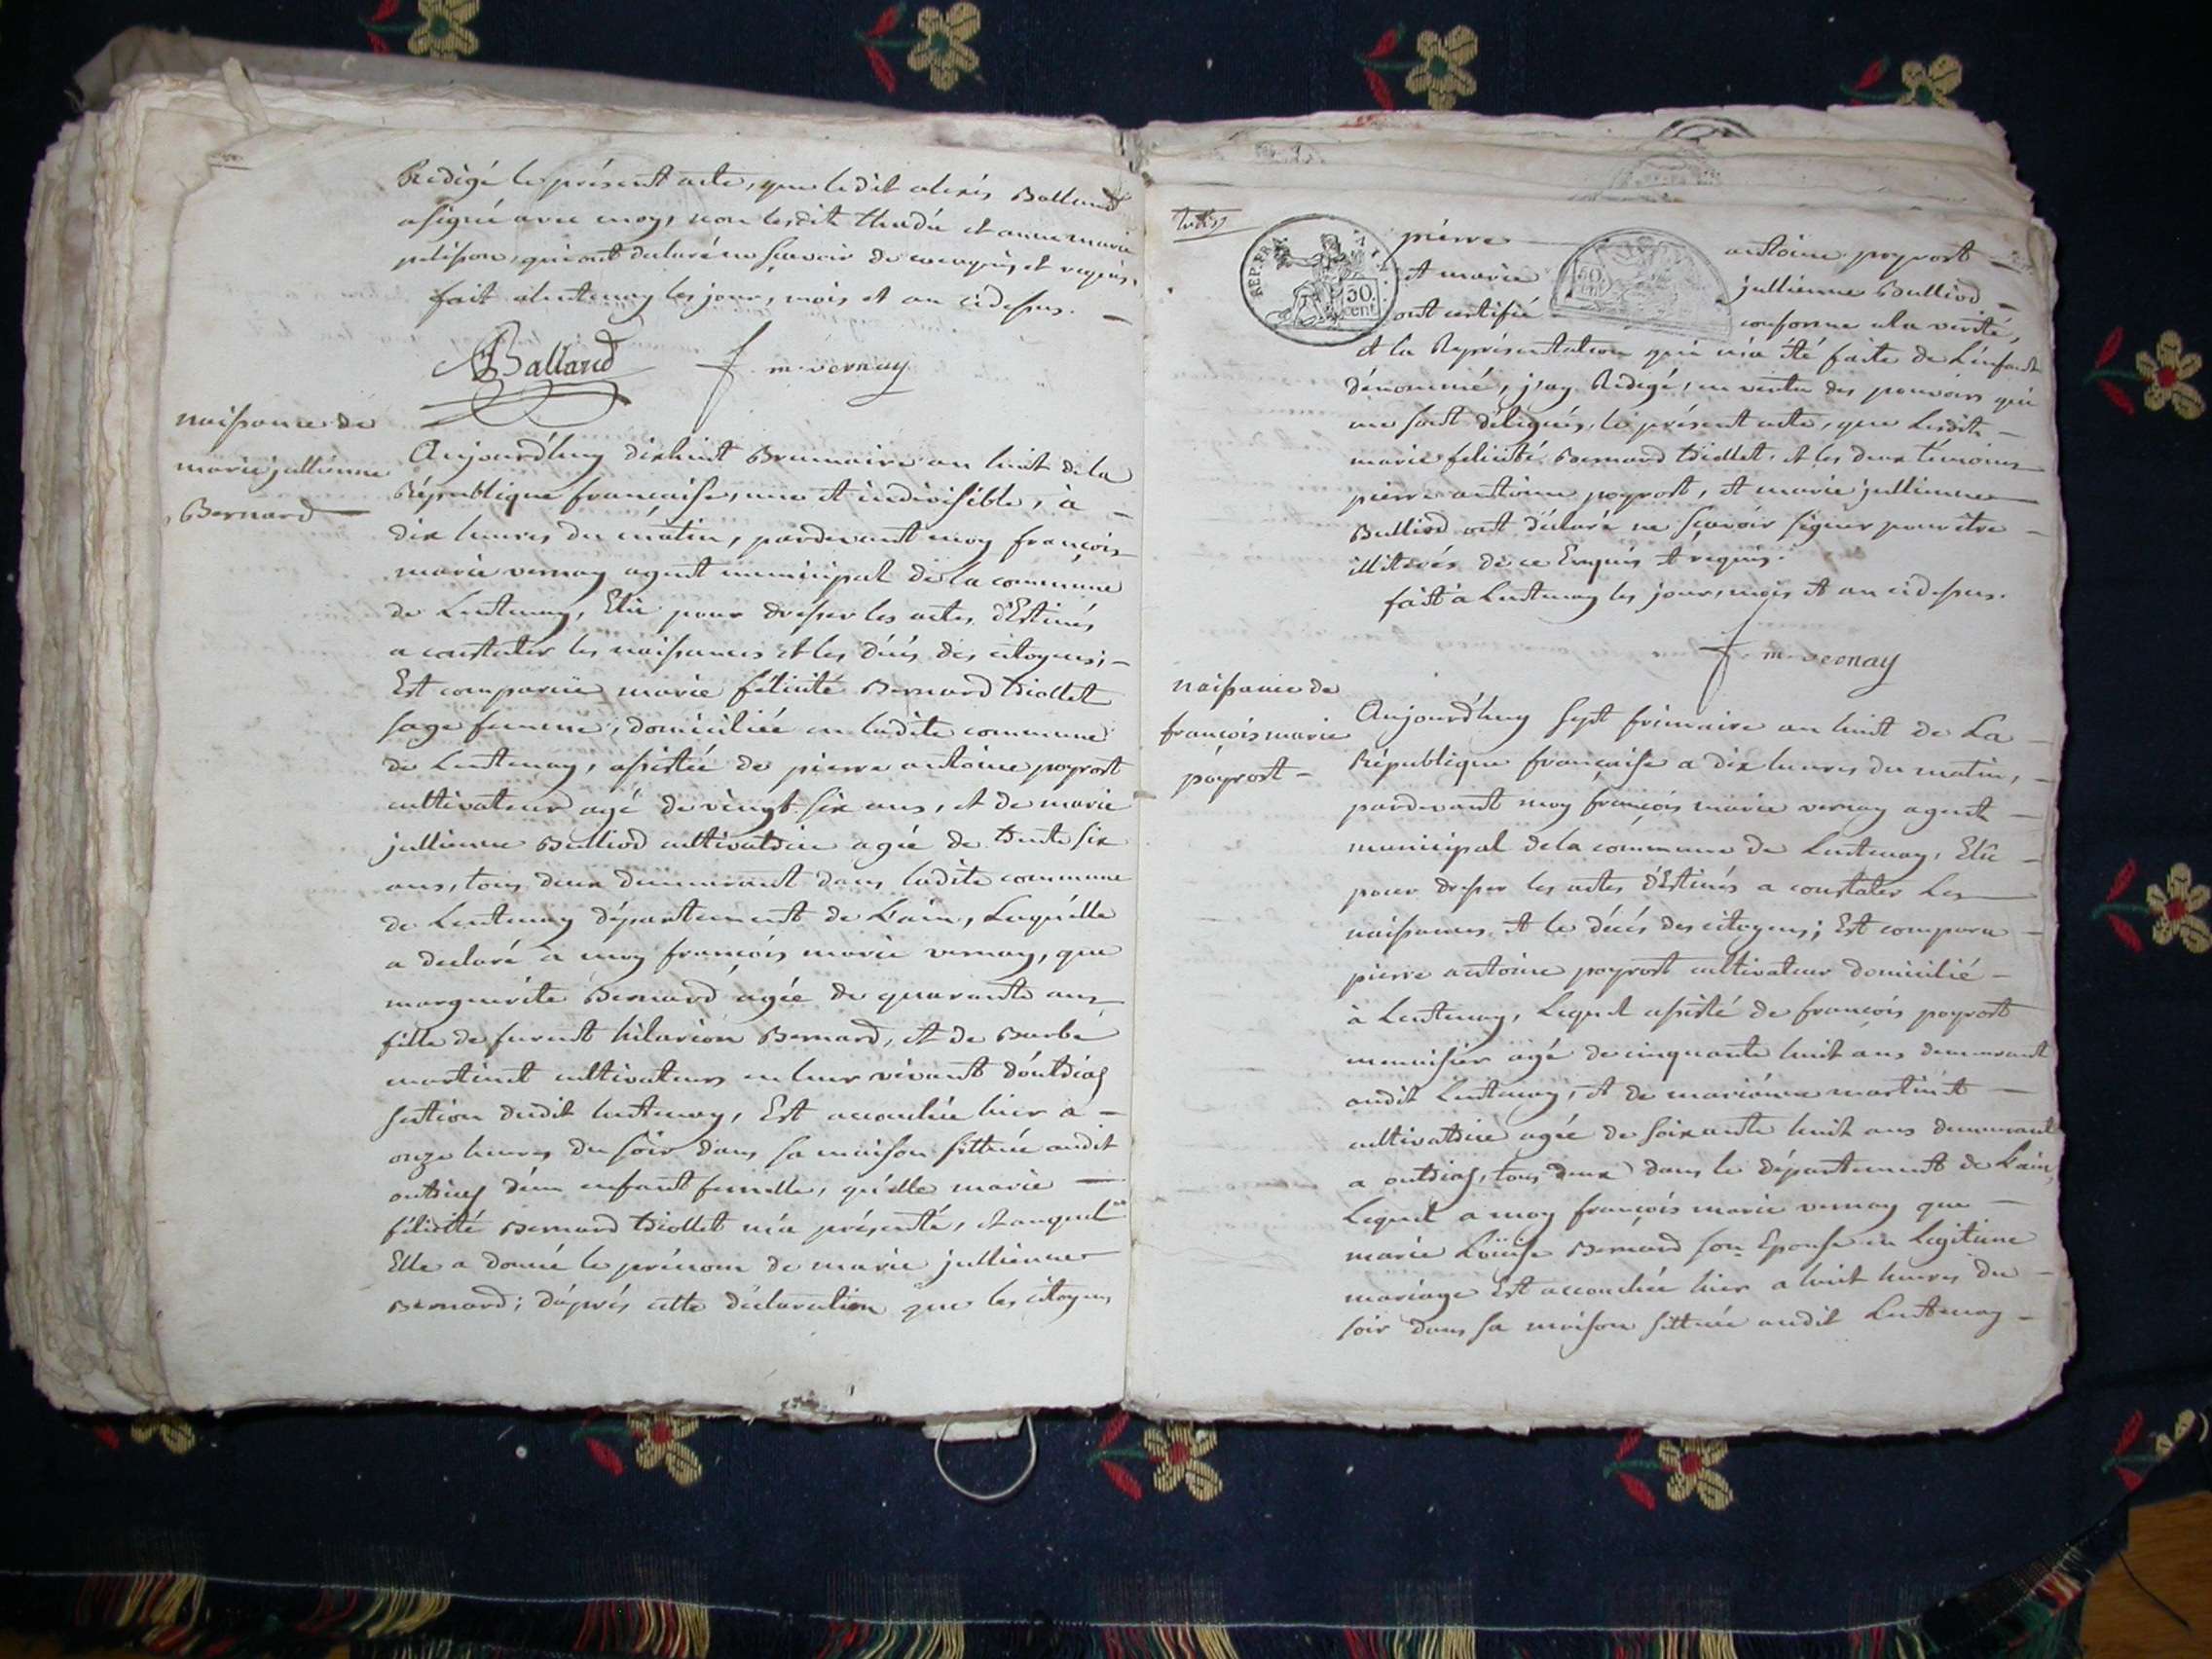 Redigé le présent acte, que ledit alexis Balland
a signé avec moy, non lesdits thadée et anne marie
pelisson, qui ont declaré ne sçavoir de ce enquis et requis.
fait a lentenay les jour, mois et an cidessus. —
ABalland f. m. vernay
naissance de
marie jullienne
Bernard —
Aujourd'huy dixhuit Brumaire an huit de la
République francaise, une et indivisible, à —
dix heures du matin, pardevant moy françois
marie vernay agent municipal de la commune
de Lentenay, Elû pour dresser les actes déstinés
a constater les naissances et les décés des citoyens; —
Est comparüe marie félicité Bernard triollet
sage femme, domiciliée en ladite commune
de Lentenay, assistée de pierre antoine poyrost
cultivateur agé de vingt six ans, et de marie
jullienne Bulliod cultivatrice agée de trente six
ans, tous deux demeurant dans ladite commune
de Lentenay département de L'ain, Laquélle
a declaré a moy françois marie vernay, que
marguérite Bernard agée de quarante ans
fille de furent hilarion Bernard, et de Barbe
martinet cultivateurs en leur vivant d'outriaz
section dudit lentenay, Est accouchée hier a —
onze heures du soir dans sa maison sittuée audit
outriaz d'un enfant femelle, qu'elle marie —
félicité Bernard triollet m'a présenté, et auquel
Elle a donné le prénom de marie jullienne
Bernard; d'aprés cette déclaration que les citoyens
pierre antoine poyrost —
et marie jullienne Bulliod —
ont certifié conforme a la verité,
REP. FRA
50
cent.
et la Représentation qui m'a été faite de L'enfant
dénommé, j'ay Redigé, en vertu des pouvoirs qui
me sont délegués, le présent acte, que Lesdits —
marie félicité Bernard triollet, et les deux témoins
pierre antoine poyrost, et marie jullienne
Bulliod ont déclaré ne sçavoir signer pour être —
illiterés de ce Enquis et requis.
fait a Lentenay les jour, mois et an cidessus.
f. m. vernay
naissance de
françois marie
poyrost —
Aujourd'huy sept frimaire an huit de La —
République française a dix heures du matin, —
pardevant moy françois marie vernay agent —
municipal de la commune de Lentenay, Elû —
pour dresser les actes déstinés a constater Les —
naissances et le décés des citoyens; Est comparu —
pierre antoine poyrost cultivateur domicilié —
à Lentenay, Lequel assisté de françois poyrost
menuisier agé de cinquante huit ans demeurant
audit Lentenay, et de mariánne martinet —
cultivatrice agée de soixante huit ans demeurant
a outriaz, tous deux dans le département de L'ain,
Lequel a moy françois marie vernay que —
marie Loüise Bernard son Epouse en Legitime
mariage Est accouchée hier a huit heures du —
soir dans sa maison sittuée audit Lentenay —